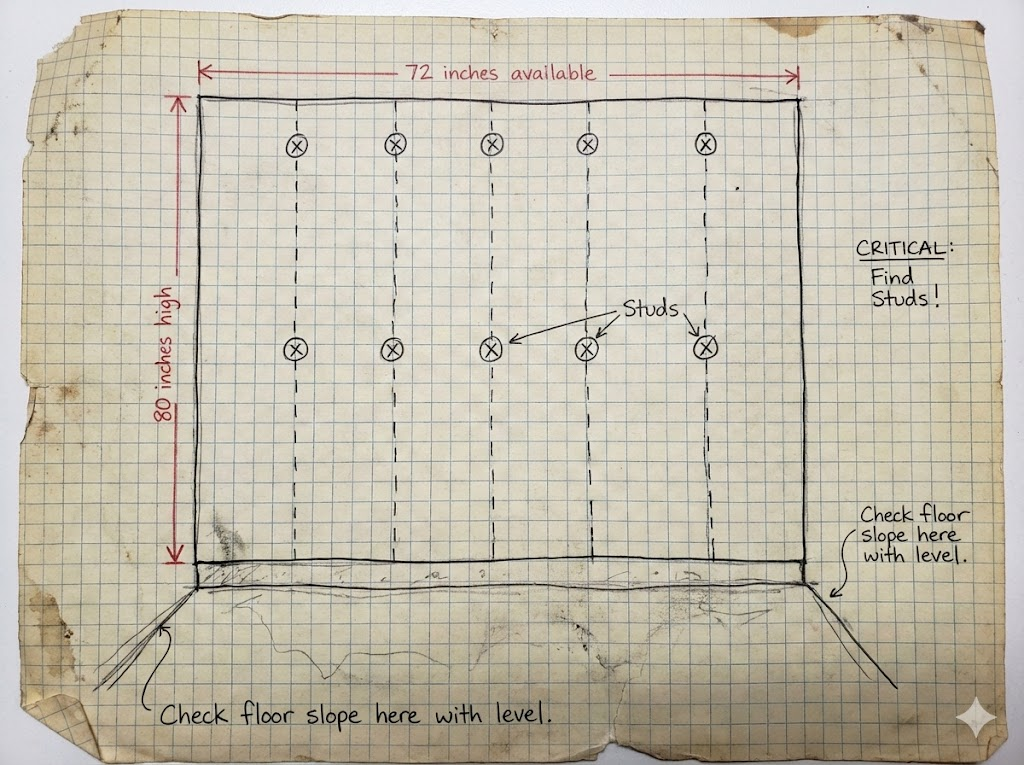 72 inches available
80 inches high
CRITICAL:
Find
Studs!
Studs
Check floor
slope here
with level.
Check floor slope here with level.